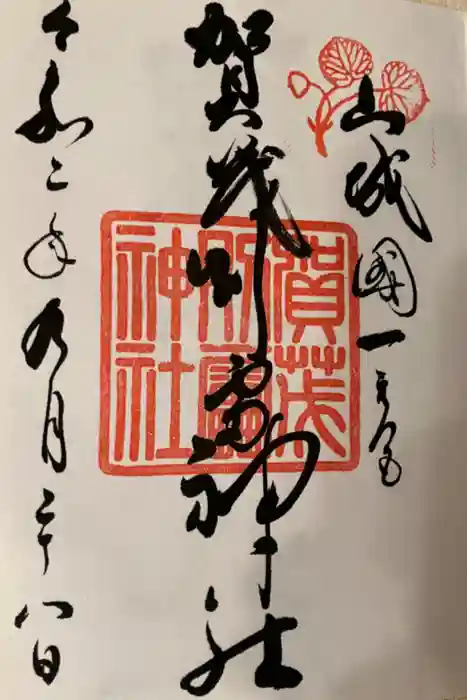 山城國一之宮
賀茂別雷神社
令和二年九月二十八日
賀茂
別雷
神社